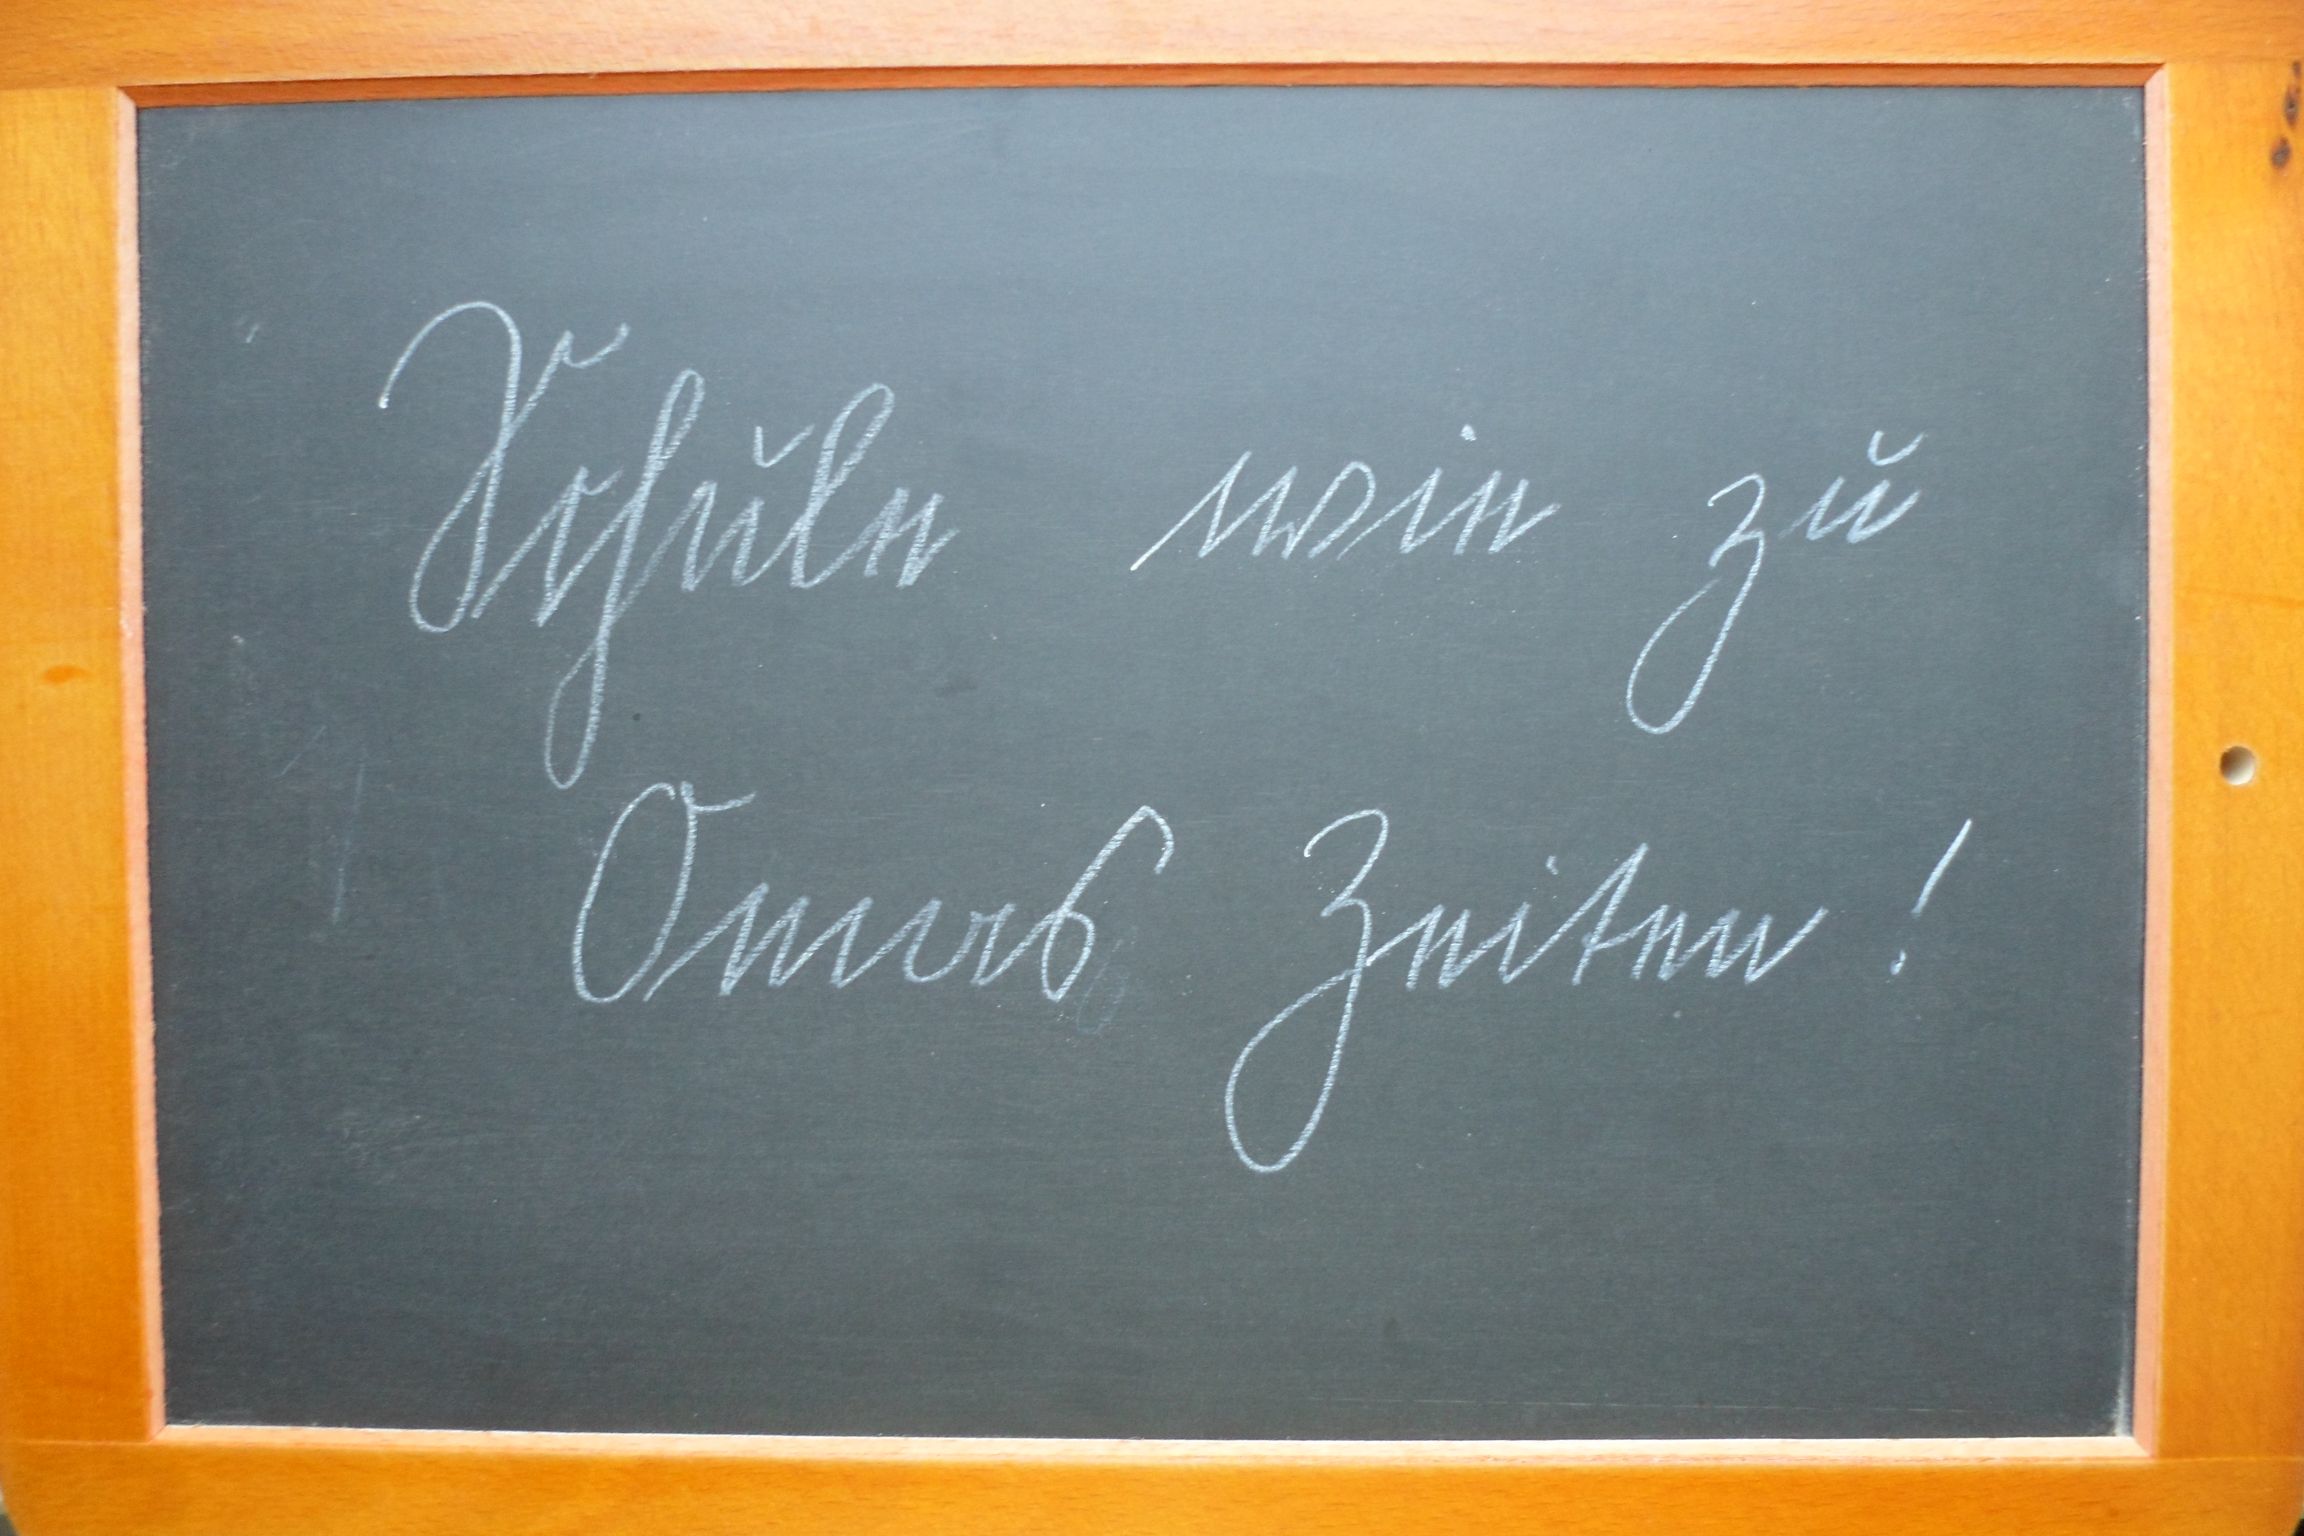 Schule wie zu
Omas Zeiten!